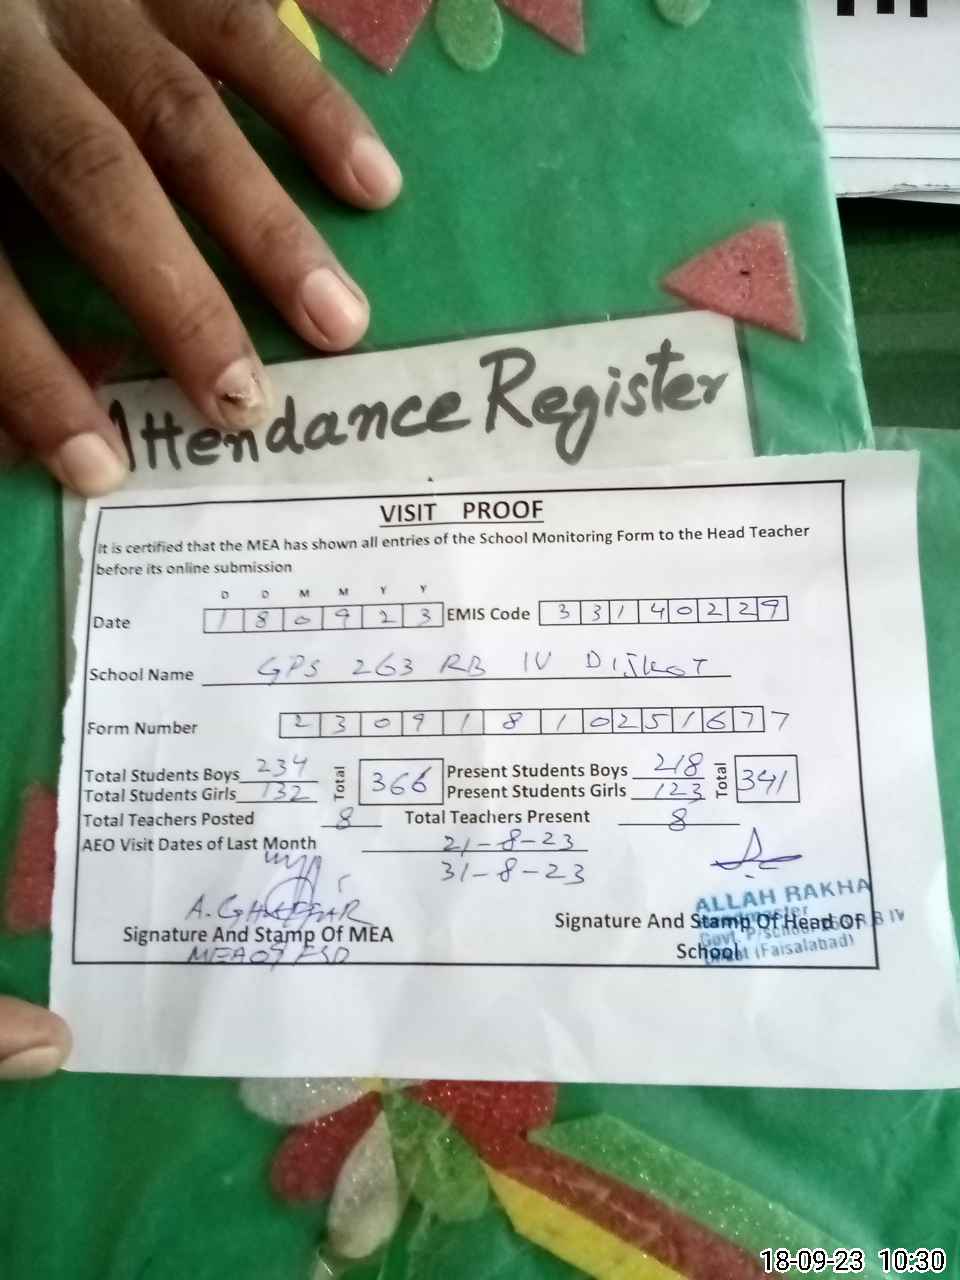 Attendance Register
VISIT PROOF
It is certified that the MEA has shown all entries of the School Monitoring Form to the Head Teacher
before its online submission
D D M M Y Y
Date 1 8 0 9 2 3 EMIS Code 3 3 1 4 0 2 2 9
School Name GPS 263 RB IV Dijkot
Form Number 2 3 0 9 1 8 1 0 2 5 1 6 7 7
Total Students Boys 234 Total 366 Present Students Boys 218 Total 341
Total Students Girls 132 Present Students Girls 123
Total Teachers Posted 8 Total Teachers Present 8
AEO Visit Dates of Last Month 21-8-23
31-8-23
A. GHAFFAR
ALLAH RAKHA
Signature And Stamp Of MEA Signature And Stamp Of Head OF
School
B IV
Govt. P/School
(Faisalabad)
MEA07 FSD
18-09-23 10:30